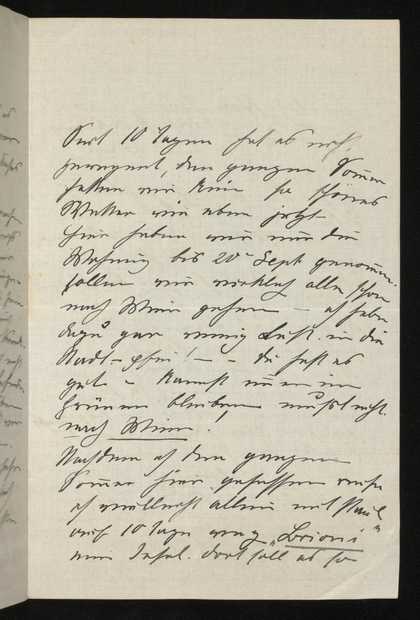 Seit 10 Tagen hat es nicht
geregnet, den ganzen Sommer
hatten wir kein so schönes
Wetter wie eben jetzt
hier haben wir nur die
Wohnung bis 20t Sept genommen.
sollen wir wirklich alle schon
nach Wien gehen – ich habe
dazu gar wenig Lust. in die
Stadt – pfui! – – du hast es
gut – kannst immer im
Grünen bleiben musst nicht
nach Wien.
Nachdem ich den ganzen
Sommer hier gesessen
ich vielleicht allein mit Paul
auf 10 Tage weg „Brioni"
eine Insel. dort soll es so